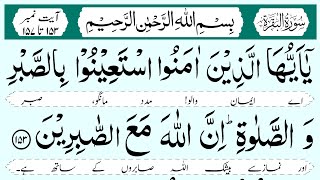 سُوْرَةُ الْبَقَرَة
بِسْمِ اللّٰهِ الرَّحْمٰنِ الرَّحِيْمِ
آیت نمبر
۱۵۳ تا ۱۵۷
يٰٓاَيُّهَا الَّذِيْنَ اٰمَنُوا اسْتَعِيْنُوْا بِالصَّبْرِ
اے ایمان والو! مدد مانگو، صبر
وَ الصَّلٰوةِ ؕ اِنَّ اللّٰهَ مَعَ الصّٰبِرِيْنَ ﴿۱۵۳﴾
اور نماز سے بیشک اللہ صابروں کے ساتھ ہے۔